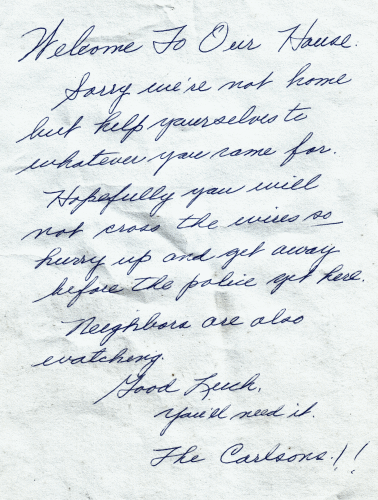 Welcome To Our House.
Sorry we're not home
but help yourselves to
whatever you came for.
Hopefully you will
not cross the wires so
hurry up and get away
before the police get here.
Neighbors are also
watching.
Good Luck.
You'll need it.
The Carlsons.!!